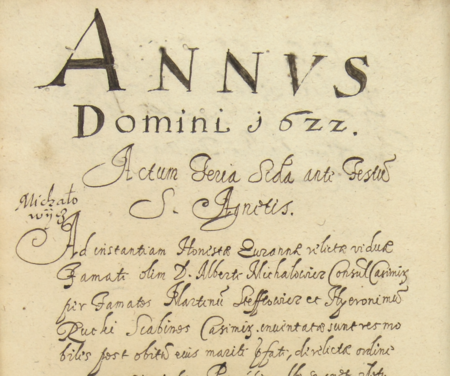 ANNVS
Domini 1622.
Actum Feria Scda ante Festũ
S. Agnetis.
Michało
wicz
Ad instantiam Honestæ Zuzannæ relictæ viduæ
Famati olim D. Alberti Michalowicz Consul Casimir
per Famatos Martinũ et Hyeronimũ
Pucki Scabinos Casimir. inuentatæ sunt res mo
biles post obitũ eius mariti pfati, derelictæ ordine